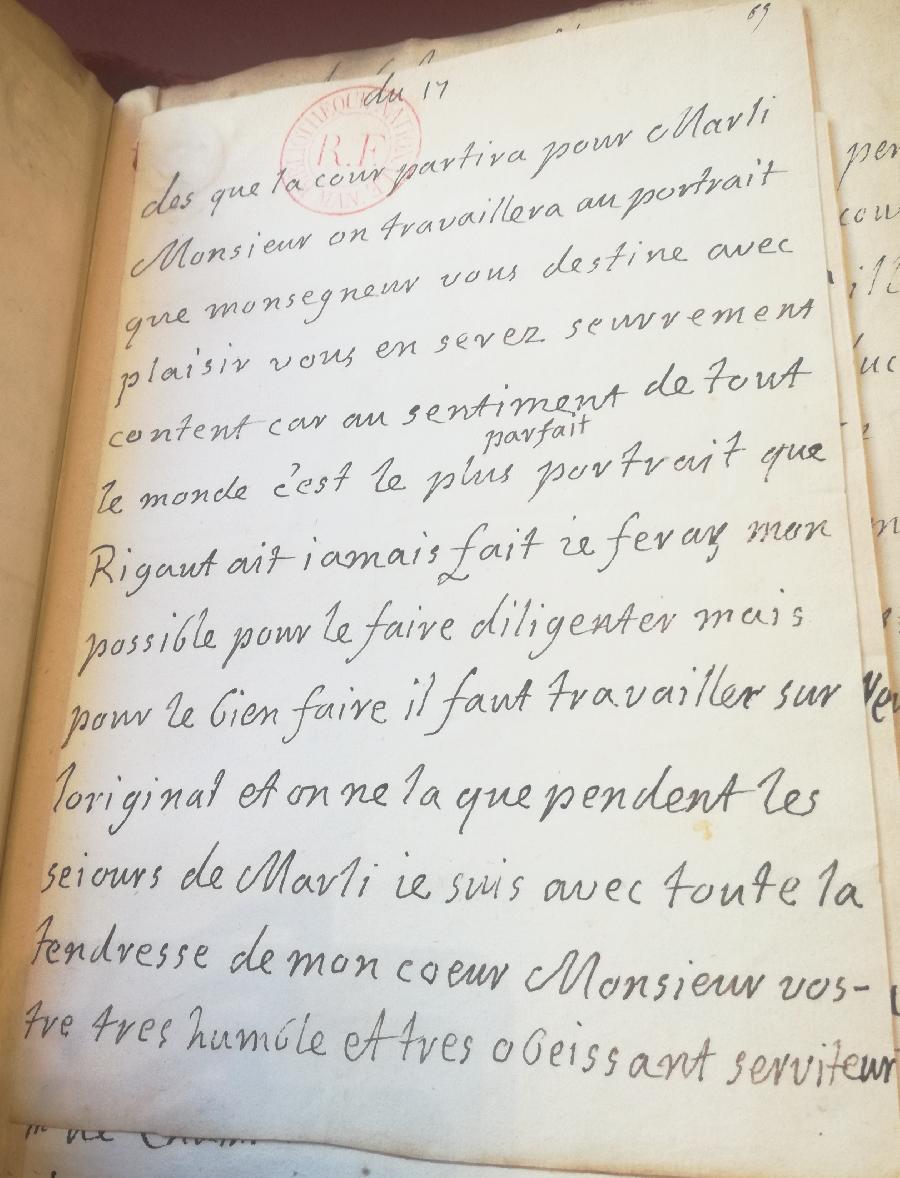 69
du 17
R.F
des que la cour partira pour Marli
Monsieur on travaillera au portrait
que monsegneur vous destine avec
plaisir vous en serez seurrement
content car au sentiment de tout
parfait
le monde c'est le plus portrait que
Rigaut ait iamais fait ie feray mon
possible pour le faire diligenter mais
pour le bien faire il faut travailler sur
loriginal et on ne la que pendent les
seiours de Marli ie suis avec toute la
tendresse de mon coeur Monsieur vos-
tre tres humble et tres obeissant serviteur